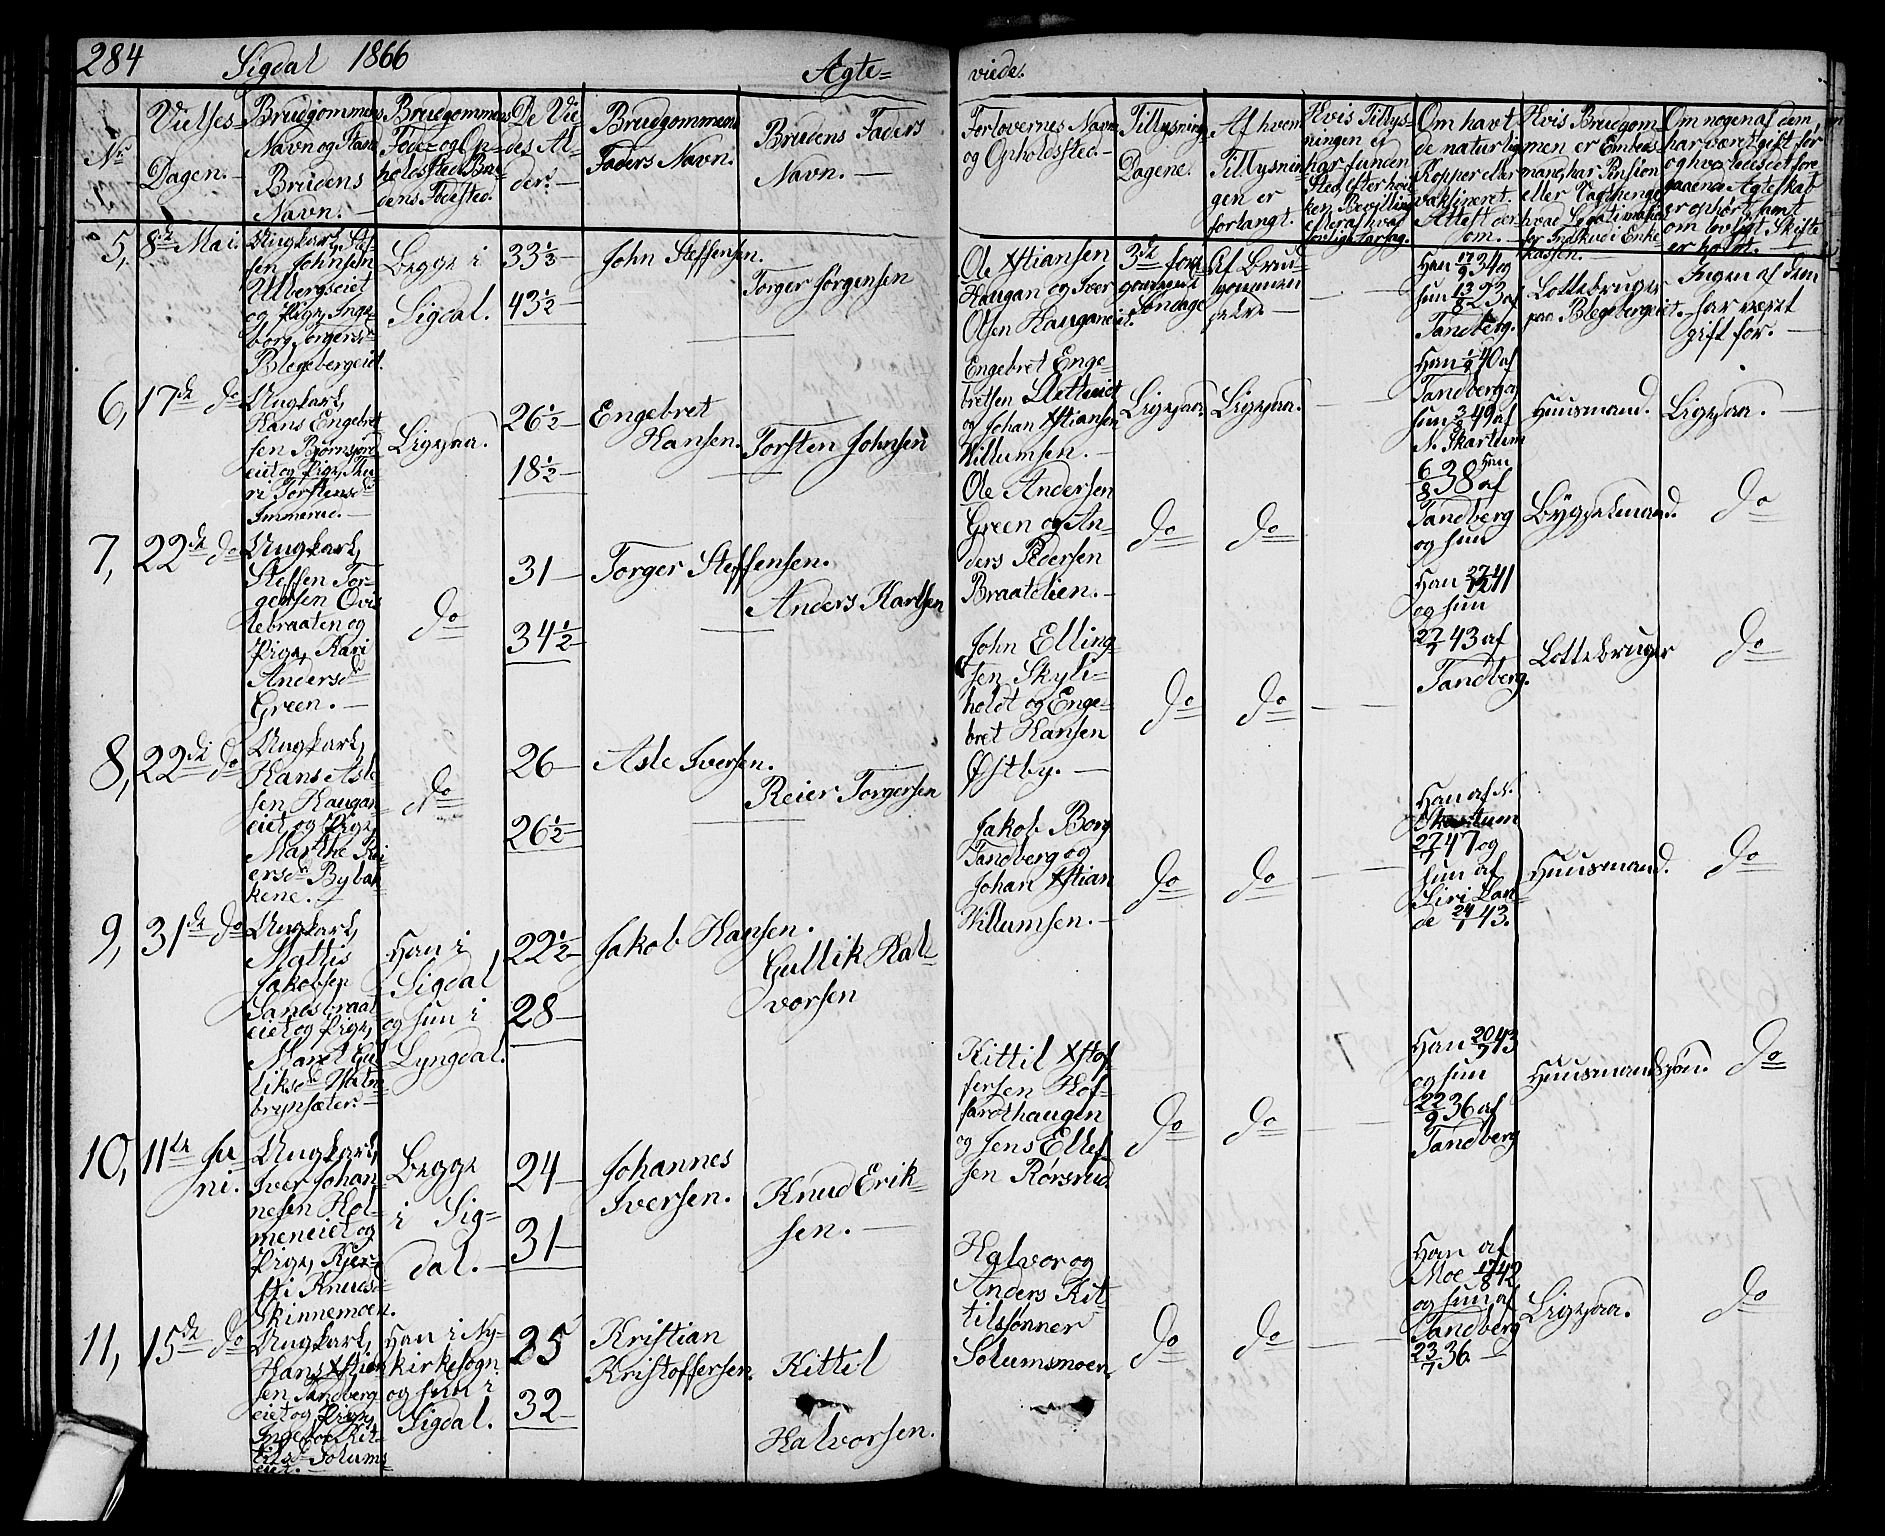 284 Sigdal 1866 Ægte=
viede.
No
Vielses-
Dagen.
Brudgommens
Navn og Stand
Brudens
Navn.
Brudgommens
Føde- og Op-
holdssted Bru-
dens Fødested.
De Vie-
des Al-
der.
Brudgommens
Faders Navn.
Brudens Faders
Navn.
Forlovernes Navn
og Opholdssted.
Tillysnings
Dagene.
Af hvem
Tillysnin-
gen er
forlangt.
Hvis Tillys-
ningen ei
har funden
Sted, efter hvil-
ken Bevilling
eller af hvad
lovlig Aarsag.
Om havt
de naturlige
Kopper eller
vaksineret.
Attest der-
om.
Hvis Brudgom-
men er Embeds-
mand, har Pension
eller Vartpenge
hvad Legitimation
for Indskud i Enke-
kassen.
Om nogen af dem
har været gift før
og hvorledes det fore-
gaaende Ægteskab
er ophørt, samt
om lovligt Skifte
er holdt.
5, 8de Mai.
Ungkarl, Stef-
fen Johnsen
Ulbergseiet
og Pige, Inge-
borg Torgersd
Blegebergeiet.
Begge i
Sigdal.
33 1/3
43 1/2
John Steffensen.
Torger Jørgensen
Ole Xstiansen
Haugan og Iver
Olsen Hauganeiet.
3de fore-
gaaende
Søndage
Af Brud-
gommen
selv.
Han 17/9 34 og
hun 13/8 23 af
Tandberg.
Lottebruger
paa Blegebergeiet.
Ingen af dem
har været
gift før.
6, 17de do
Ungkarl,
Hans Engebret-
sen Bjørnsjord-
eiet og Pige, Thu-
ri Torstensd
Immerud.
Ligesaa.
26 1/2
18 1/2
Engebret
Hansen.
Torsten Johnsen
Engebret Enge-
bretsen Sletteeiet
og Johan Xstiansen
Willumsen.
Ligesaa.
Ligesaa.
Han 1/9 40 af
Tandberg og
hun 3/8 49 af
N. Skartum
Huusmand.
Ligesaa.
7, 22de do
Ungkarl,
Steffen Tor-
gersen Qvis-
lebraaten og
Pige, Kari
Andersd
Green.
do
31
34 1/2
Torger Steffensen.
Anders Karlsen
Ole Andersen
Green og An-
ders Pedersen
Braatelien.
do
do
6/8 38 Han
af
Tandberg
og hun
Byggelmand.
do
8, 22de do
Ungkarl,
Hans Asle-
sen Haugan-
eiet og Pige,
Marthe Rei-
ersd Bybak-
kene.
do
26
26 1/2
Asle Iversen.
Reier Torgersen
John Elling-
sen Skyli-
holdt og Enge-
bret Hansen
Østby.
do
do
Han 27/12 41
og hun
27/7 43 af
Tandberg.
Lottebruger
do
9, 31de do
Ungkarl,
Mattis
Jakobsen
Sandsbraat-
eiet og Pige,
Maret Gul-
liksd Halm-
brynsæter.
Han i
Sigdal
og hun i
Lyngdal.
22 1/2
28
Jakob Hansen.
Gullik Hal-
vorsen
Jakob Borg
Tandberg og
Johan Xstian
Willumsen.
do
do
Han af N.
Skartum
27/7 47 og
hun af
Siri Lan-
de 24/7 43.
Huusmand.
do
10, 11te Ju-
ni.
Ungkarl,
Iver Johan-
nesen Hol-
meneiet og
Pige, Kjer-
sti Knudsd
Skinnemoen.
Begge
i Sig-
dal.
24
31
Johannes
Iversen.
Knud Erik-
sen.
Kittil Xstof-
fersen Hof-
fardthaugen
og Jens Ellef-
sen Rørsrud.
do
do
Han 20/7 43
og hun
22/9 36 af
Tandberg
Huusmandssøn.
do
11, 15de do
Ungkarl,
Hans Xstian-
sen Tandberg-
eiet og Pige,
Ingebor Kit-
tilsd Solums-
eiet.
Han i Ny-
kirkesogn
og hun i
Sigdal.
25
32
Kristian
Kristoffersen.
Kittil
Halvorsen.
Halvor og
Anders Kit-
tilssønner
Solumsmoen.
do
do
Han af
Moe 17/8 42
og hun af
Tandberg
23/7 36.
Ligesaa.
do